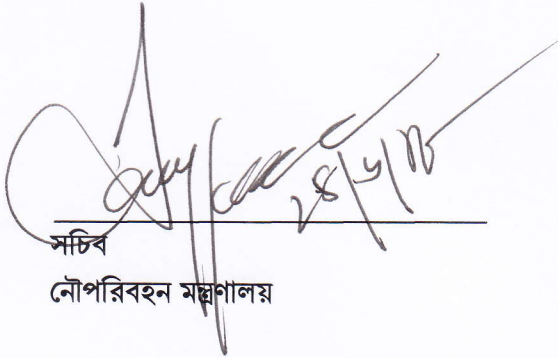 ২৪/৬/১৮
সচিব
নৌপরিবহন মন্ত্রণালয়